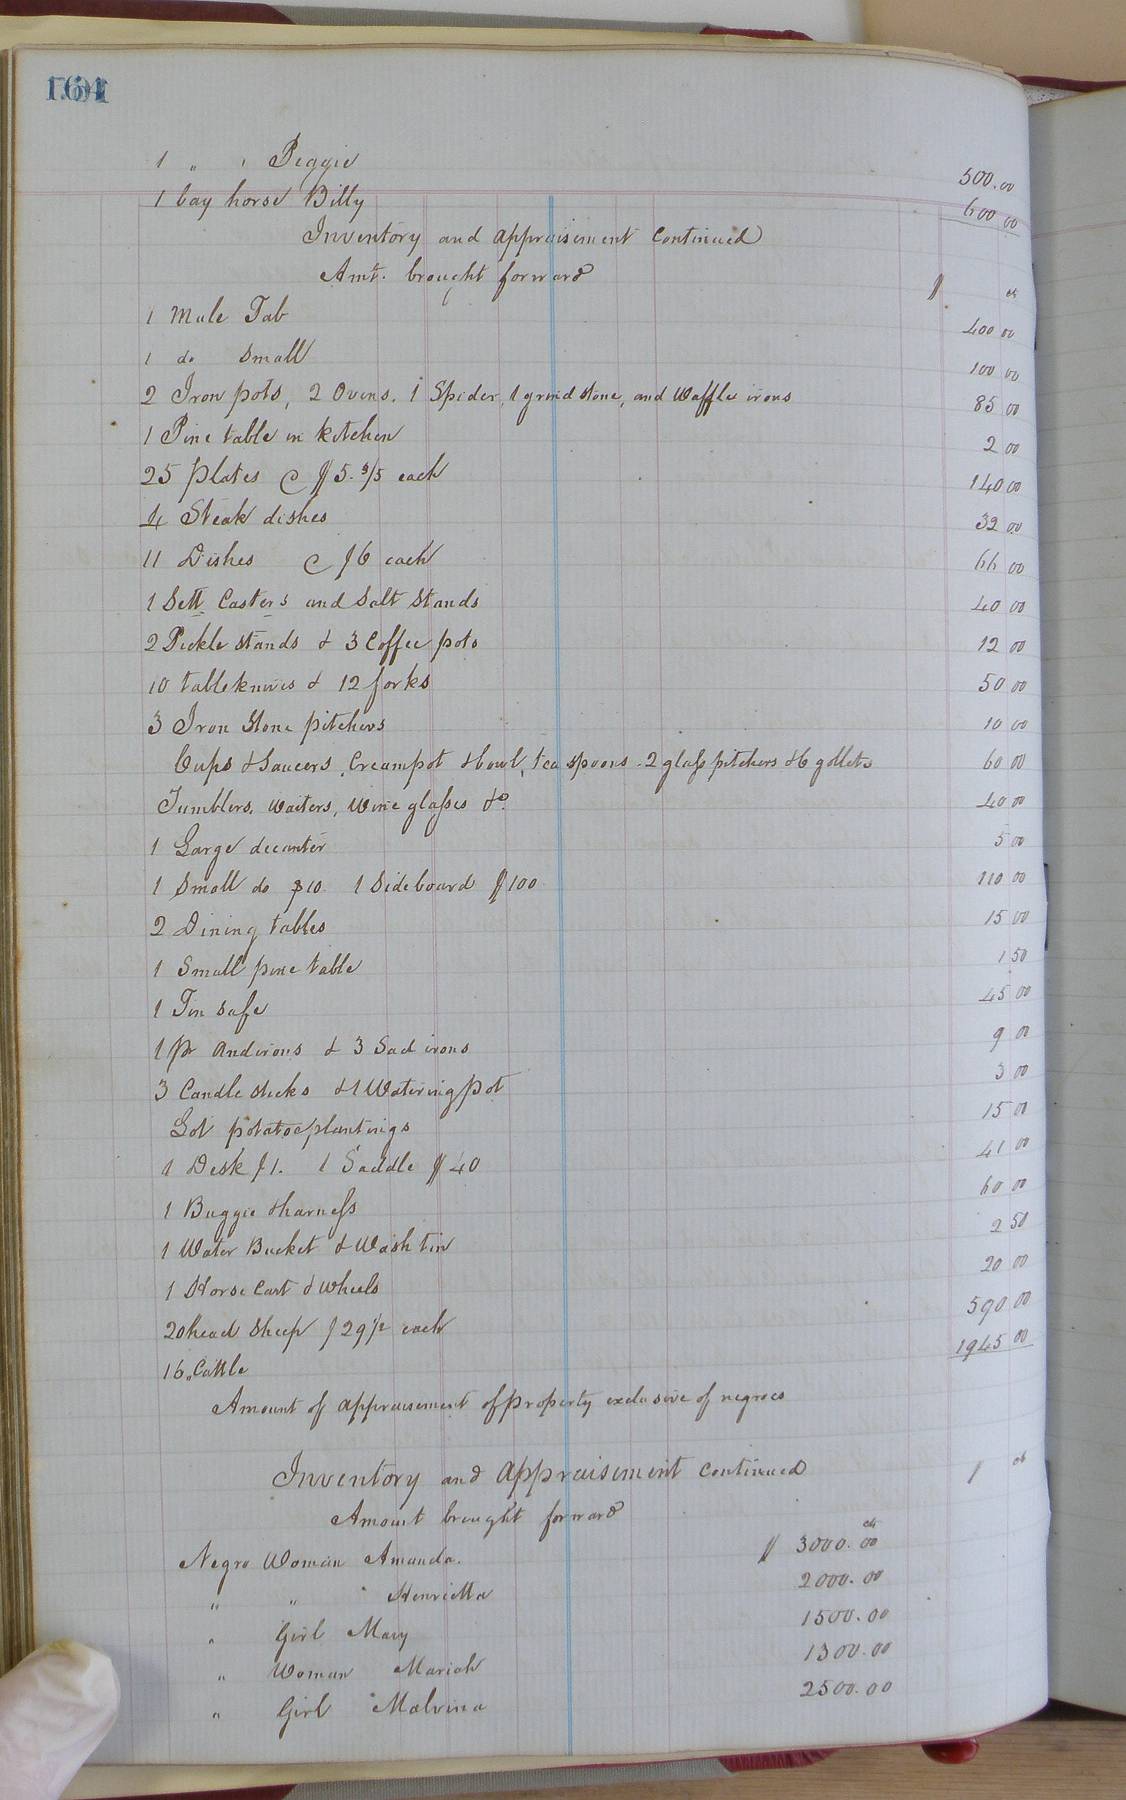 164
1 " " Peggie 500.00
1 bay horse Billy 600 00
Inventory and appraisement continued
Amt. brought forward $ cts
1 Mule Tab 400 00
1 do Small 100 00
2 Iron pots, 2 Ovens. 1 Spider, 1 grind stone, and Waffle irons 85 00
1 Pine table in kitchen 2 00
25 plates @ $5. 3/5 each 140 00
4 Steak dishes 32 00
11 Dishes @ $6 each 66 00
1 Sett Casters and Salt Stands 40 00
2 Pickle stands & 3 Coffee pots 12 00
10 table knives & 12 forks 50 00
3 Iron Stone pitchers 10 00
Cups & Saucers, Creampot & bowl, tea spoons. 2 glass pitchers & 6 goblets 60 00
Tumblers, Waiters, Wine glasses &c. 40 00
1 Large decanter 5 00
1 Small do $10. 1 Sideboard $100 110 00
2 Dining tables 15 00
1 Small pine table 1 50
1 Tin safe 45 00
1 pr Andirons & 3 Sad irons 9 00
3 Candle sticks & 1 Watering pot 3 00
Lot potatoe plantings 15 00
1 Desk $1. 1 Saddle $40 41 00
1 Buggie & harness 60 00
1 Water Bucket & Wash tin 2 50
1 Horse Cart & wheels 20 00
20 head Sheep $29 1/2 each 590 00
16 " Cattle 1945 00
Amount of appraisement of property exclusive of negroes
Inventory and appraisement continued $ cts
Amount brought forward
Negro Woman Amanda. $ 3000.00 cts
" " " Henrietta 2000.00
" Girl Mary 1500.00
" Woman Mariah 1300.00
" Girl Malvina 2500.00